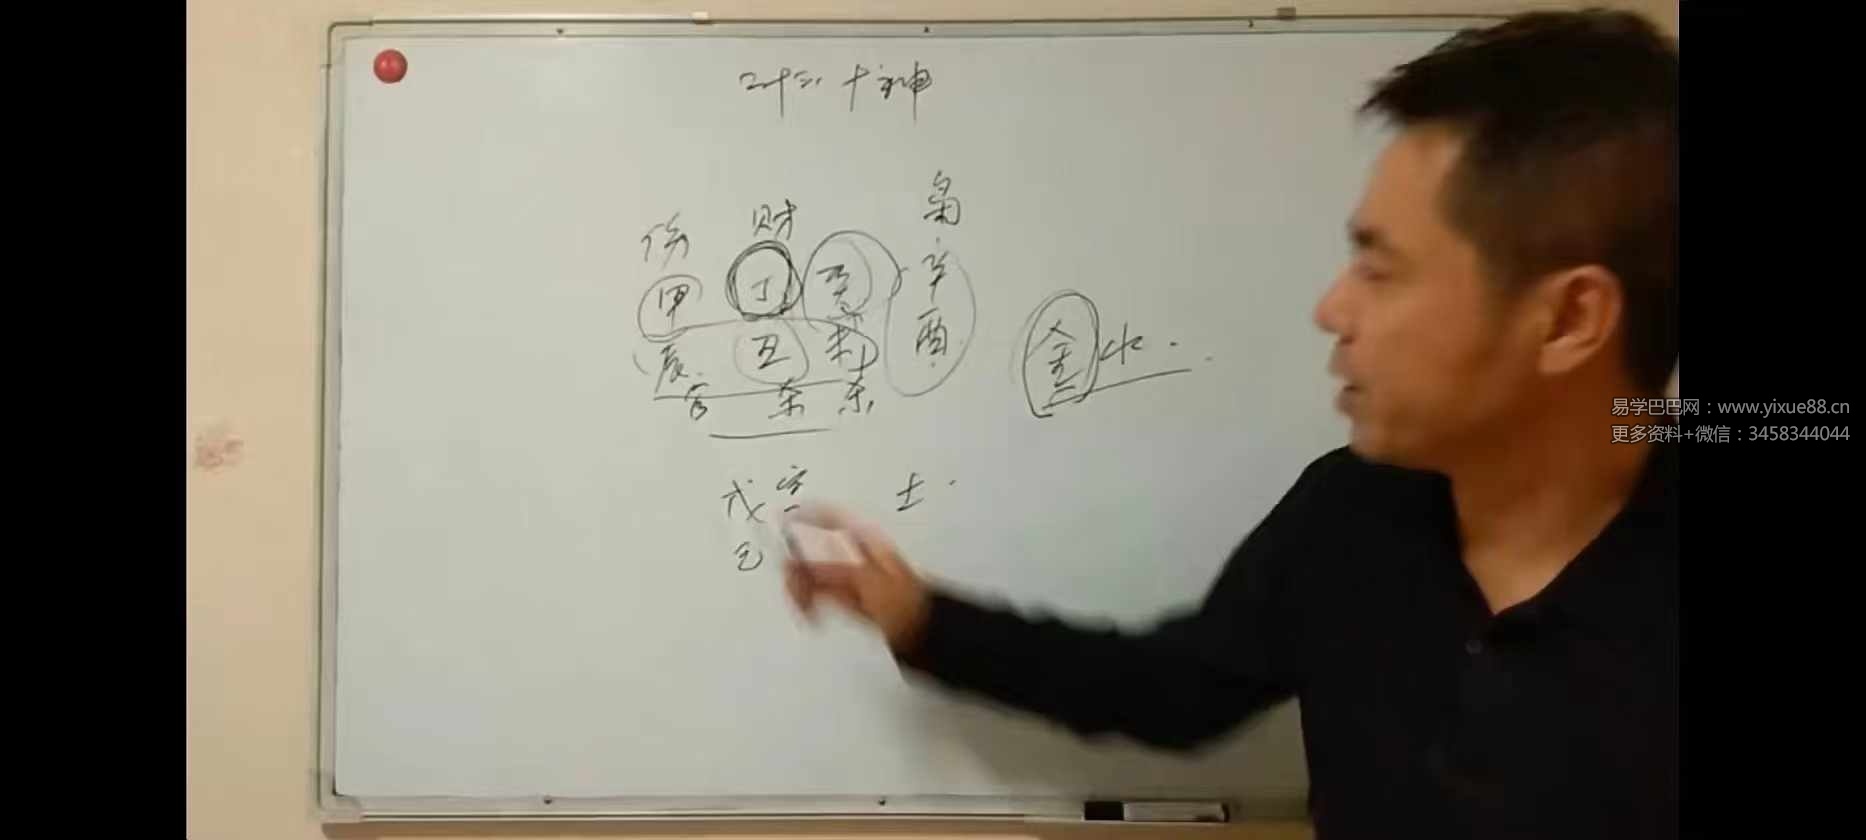 二十三. 十神
伤 财 枭
甲 丁 癸 辛
辰 丑 未 酉
官 杀 杀
金水
戊 官 土
己
易学巴巴网：www.yixue88.cn
更多资料+微信：3458344044